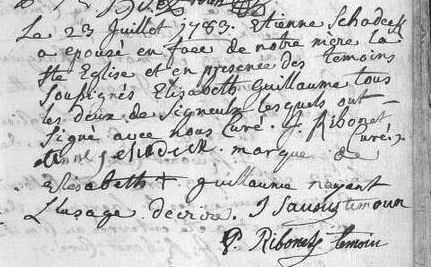 Le 23 Juillet 1783. Etienne Schadeck
a epousé en face de notre mère la
Ste Eglise et en presence des temoins
soussignés Elisabeth Guillaume tous
les deux de Signeulx lesquels ont
signé avec nous Curé. J. Ribonet
Curé.
marque de
elisabeth + guillaume nayant
L'usage decrire. J temoin
P. Ribonet temoin